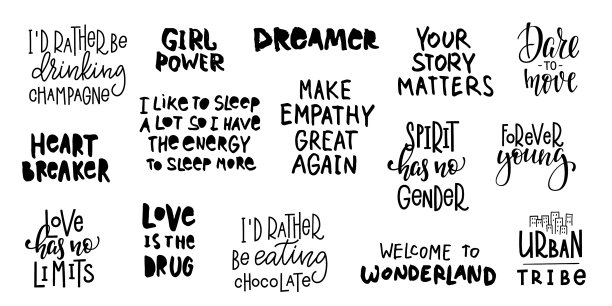 I'D RATHER BE
drinking
CHAMPAGNE
GIRL
POWER
DREAMER
YOUR
STORY
MATTERS
Dare
-TO-
move
HEART
BREAKER
I LIKE TO SLEEP
A LOT SO I HAVE
THE ENERGY
TO SLEEP MORE
MAKE
EMPATHY
GREAT
AGAIN
SPIRIT
has no
GENDER
FOREVER
young
LOVE
has no
LIMITS
LOVE
IS THE
DRUG
I'D RATHER
BE eating
CHOCOLATE
WELCOME TO
WONDERLAND
URBAN
TRIBE